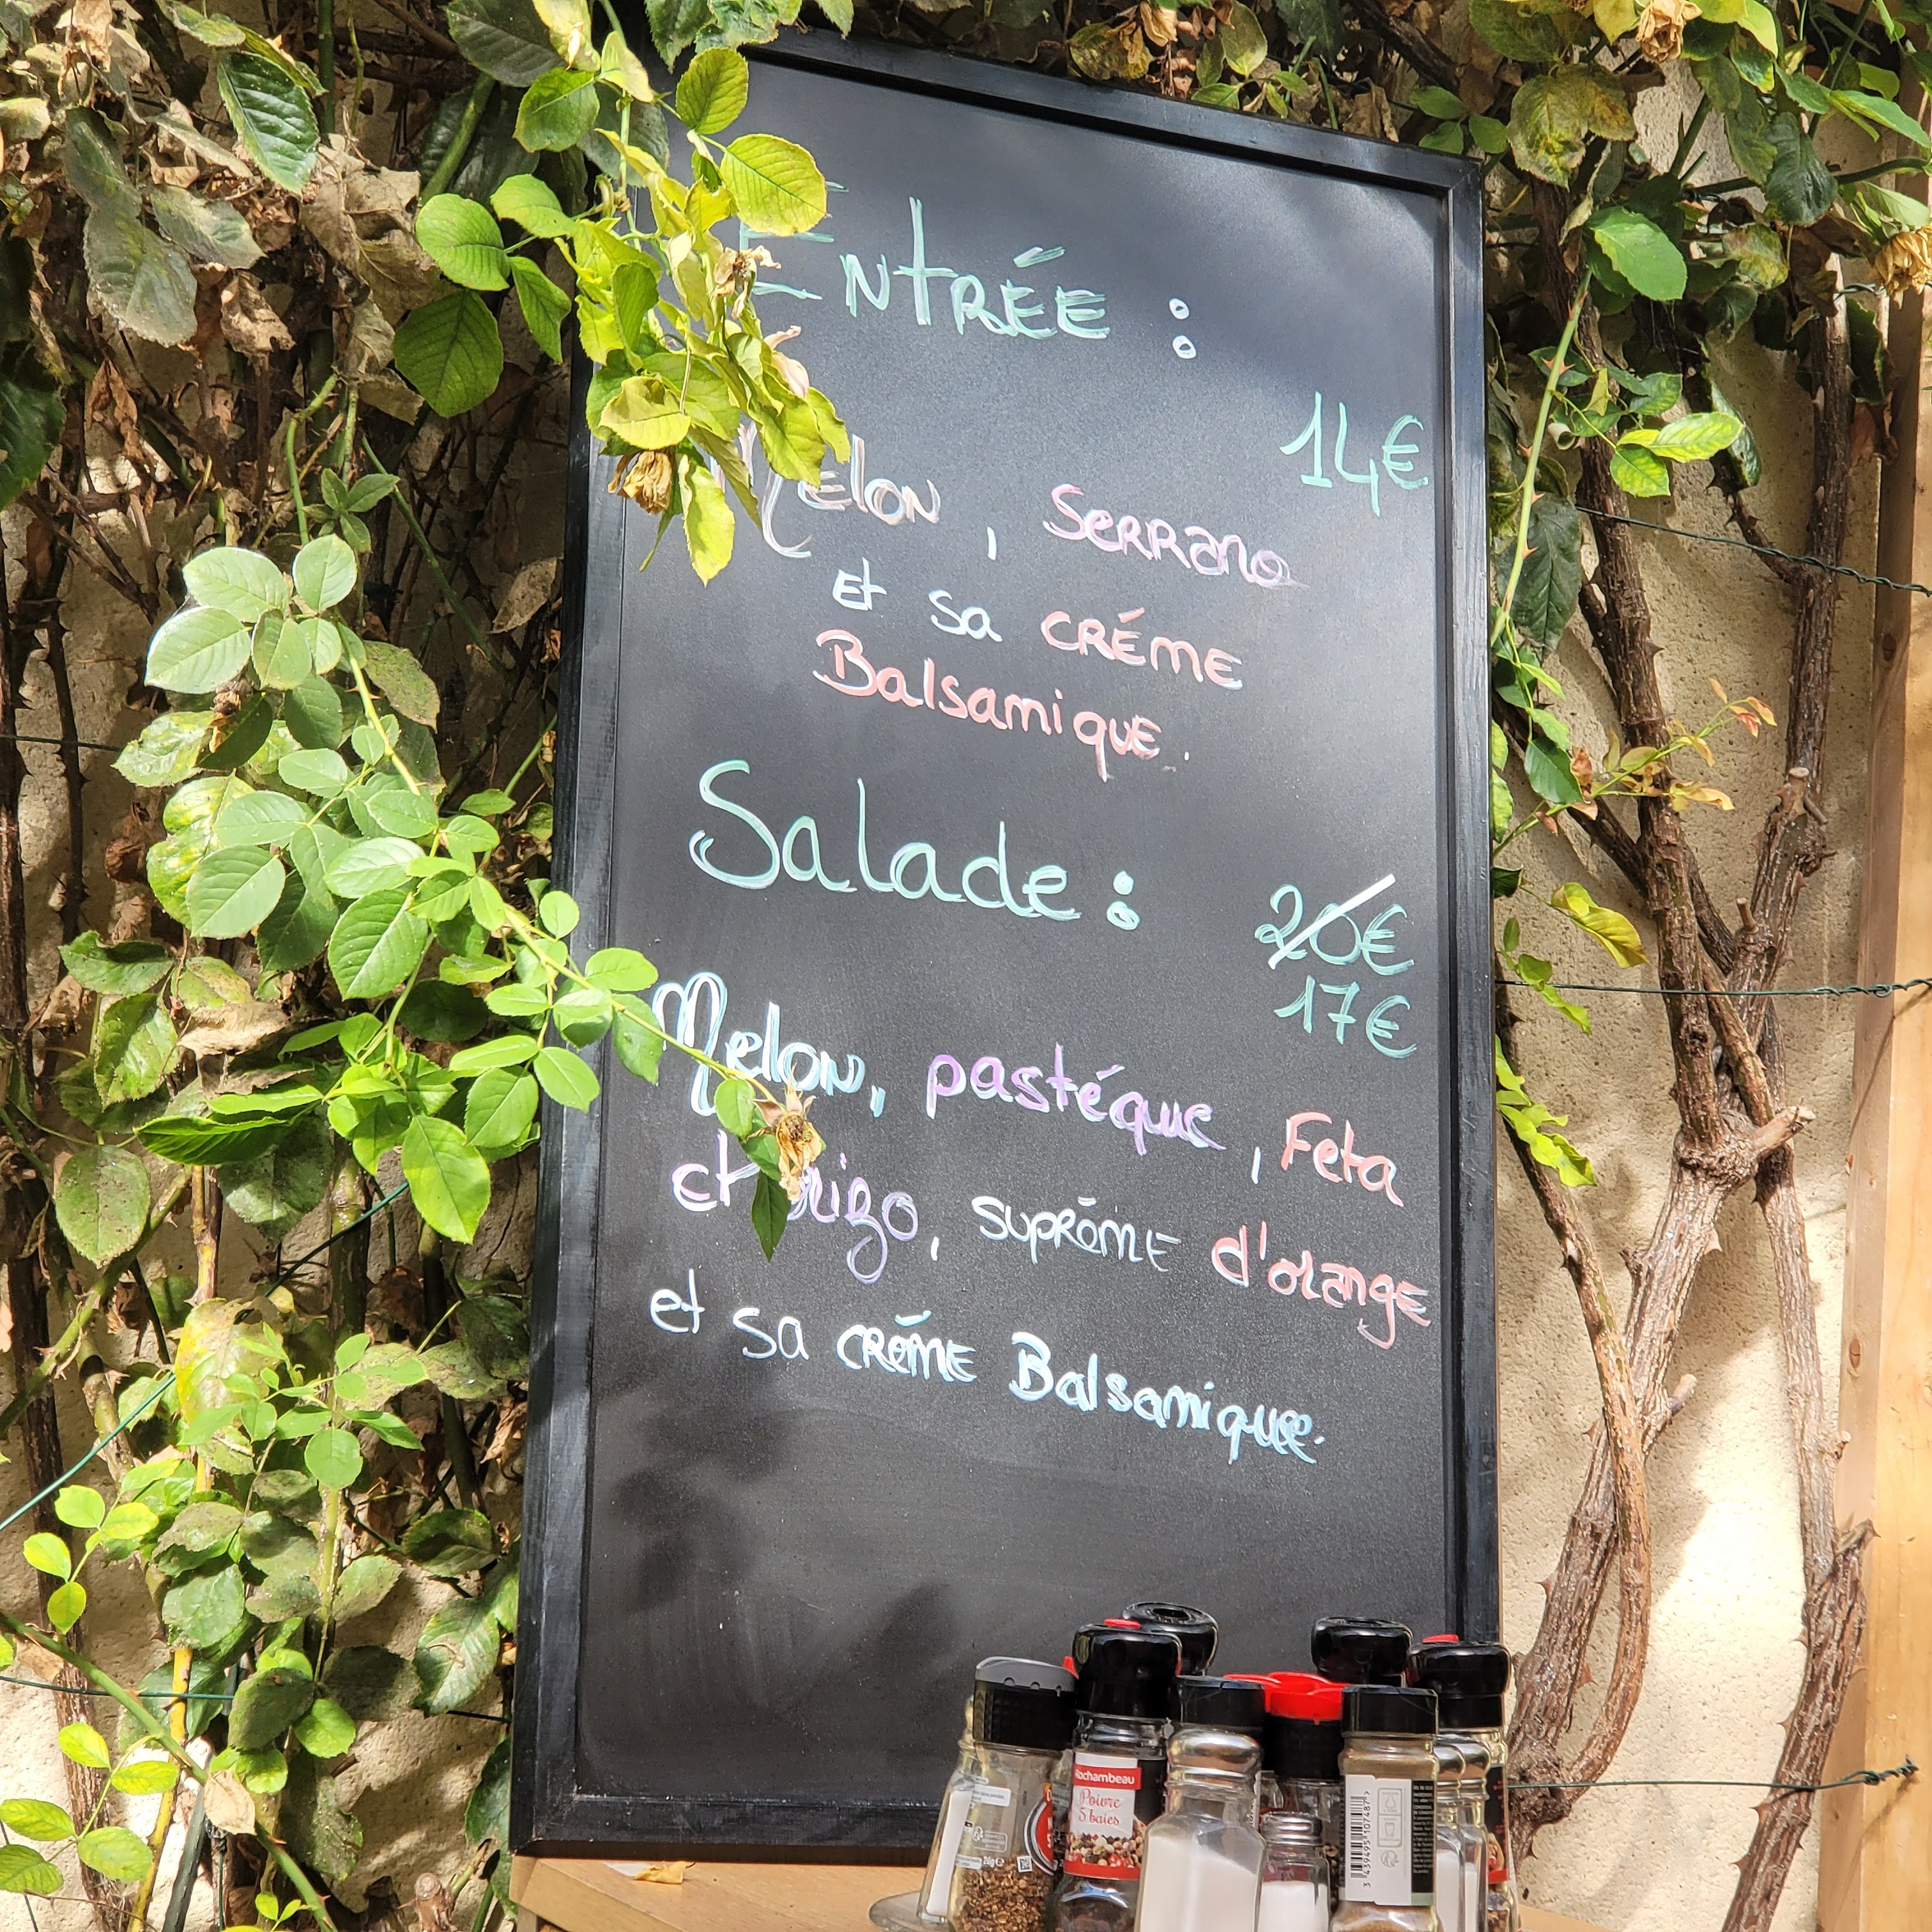 ENTRÉE :
14€
Melon, Serrano
Et sa CRÉME
Balsamique.
Salade :
20€
17€
Melon, pastéque, Feta
et
suprême d'orange
et sa crême Balsamique.
Rochambeau
Poivre
5 baies
26g e
3 439495 107487